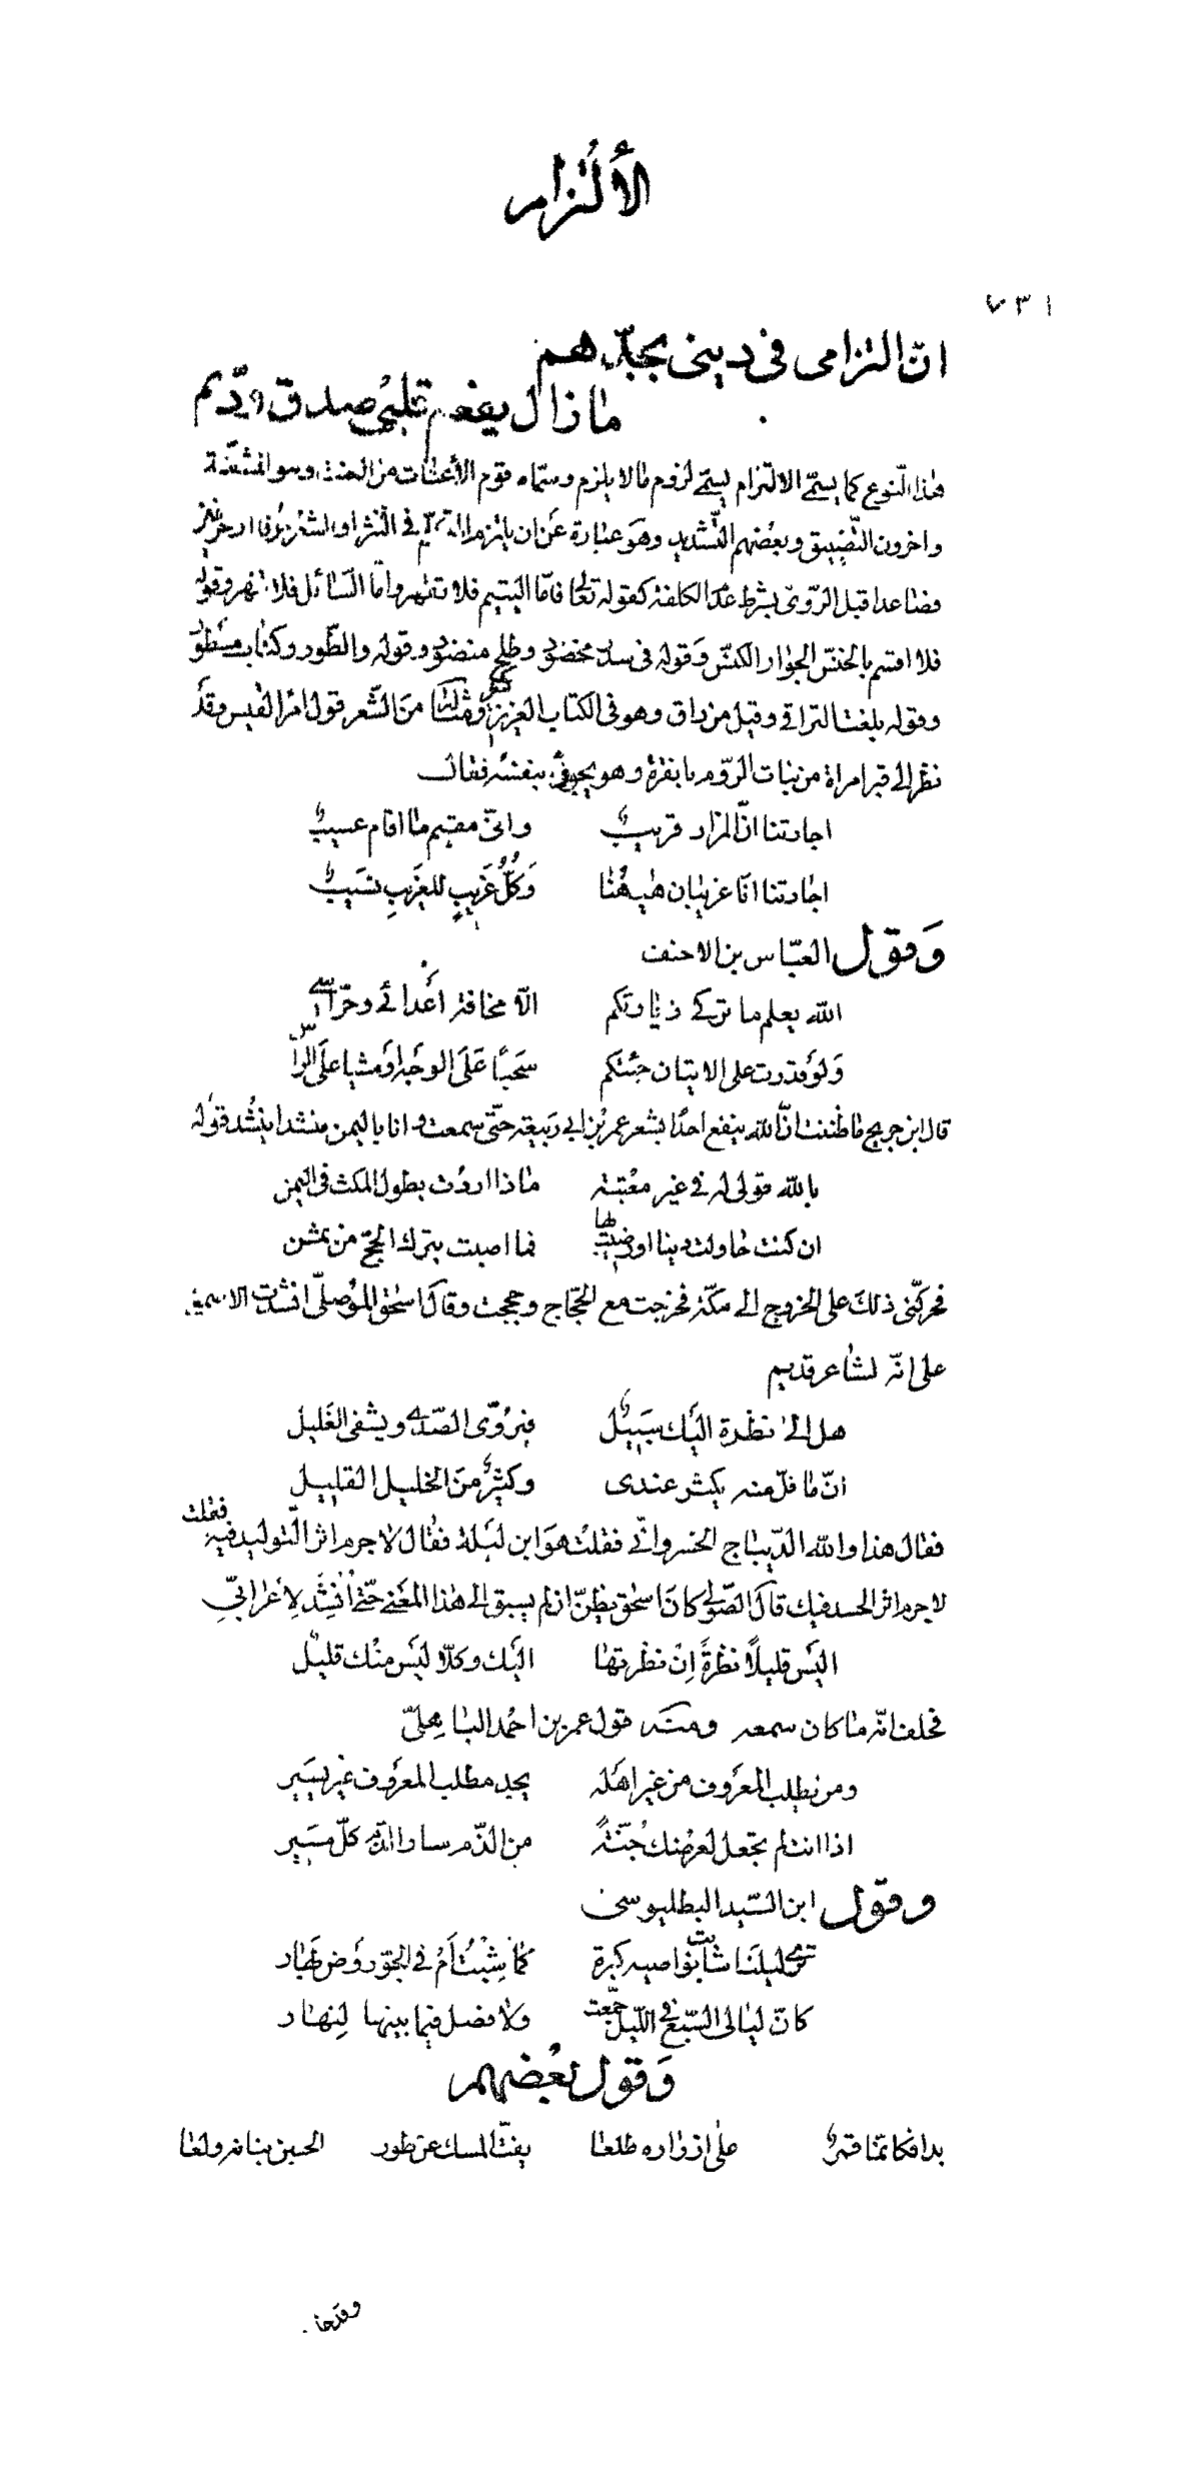 الألتزام
٧٣١
انّ التزامى فى دينى بجدّهم
ما زال يفعم قلبى صدق ودّهم
هذا النّوع كما يسمّى الالتزام يسمّى لزوم ما لا يلزم وسمّاه قوم الأعنات من العنت وهو المشقّة
واخرون التّضييق وبعضهم التّشديد وهو عبارة عن ان يلتزم المتكلّم فى النّثر او الشعر بحرف او حرفين
فصاعدا قبل الرّوىّ بشرط عدم الكلفة كقوله تعالى فامّا اليتيم فلا تقهر وامّا السّائل فلا تنهر وقوله
فلا اقسم بالخنّس الجوار الكنّس وقوله فى سدر مخضود وطلح منضود وقوله والطّور وكتاب مسطور
وقوله بلغت التراقى وقيل من راق وهو فى الكتاب العزيز كثير ومثاله من الشّعر قول امرا القيس وقد
نظر الى قبر امراة من بنات الرّوم بانقرة وهو يجود بنفسه فقال
اجارتنا انّ المزار قريب وانّى مقيم ما اقام عسيب
اجارتنا انّا غريبان هيهنا وكلّ غريب للغريب نسيب
وقول العبّاس بن الاحنف
الله يعلم ما تركى زيارتكم الّا مخافة أعدائى وحرّاسى
ولو قدرت على الاتيان جئتكم سحبا على الوجه او مشيا على الرّاس
قال ابن جريج ما ظننت انّ الله ينفع احدا بشعر عمر بن ابى ربيعة حتّى سمعت وانا باليمن منشدا ينشد قوله
بالله قولى له فى غير معتبة ماذا اردت بطول المكث فى اليمن
ان كنت حاولت دينا او رضيت بها فما اصبت بترك الحجّ من ثمن
فحرّكنى ذلك على الخروج الى مكّة فخرجت مع الحجّاج وحججت وقال اسحق الموصلىّ انشدت الاصمعى
على انّه لشاعر قديم
هل الى نظرة اليك سبيل فيروّى الصّدى ويشفى الغليل
انّ ما قلّ منه يكثر عندى وكثير من الخليل القليل
فقال هذا والله الدّيباج الخسروانّى فقلت هو ابن ليلة فقال لا جرم اثر التّوليد فيه فقلت
لا جرم اثر الحسد فيك قال الصّولى كان اسحق يظنّ انه لم يسبق الى هذا المعنى حتّى أنشد لأعرابىّ
اليس قليلا نظرة إن نظرتها اليك وكلّا ليس منك قليل
فحلف انّه ما كان سمعه ومنه قول عمر بن احمد الباهلىّ
ومن يطلب المعروف من غير اهله يجد مطلب المعروف غير يسير
اذا انت لم تجعل لعرضك جنّة من الذّم سار الذّم كلّ مسير
وقول ابن السّيد البطليوسى
ترى ليلنا شابت نواصيه كبرة كما شبت أم فى الجوّ روض بهار
كانّ ليالى السّبع فى اللّيل جمّعت ولا فصل فيما بينها لنهار
وقول بعضهم
بدا فكانّما قمر على ازراره طلعا يفتّ المسك عن طور الجبين بنانه ولعا